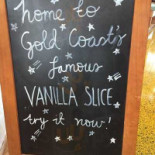 home to
Gold Coast's
famous
VANILLA SLICE
try it now!